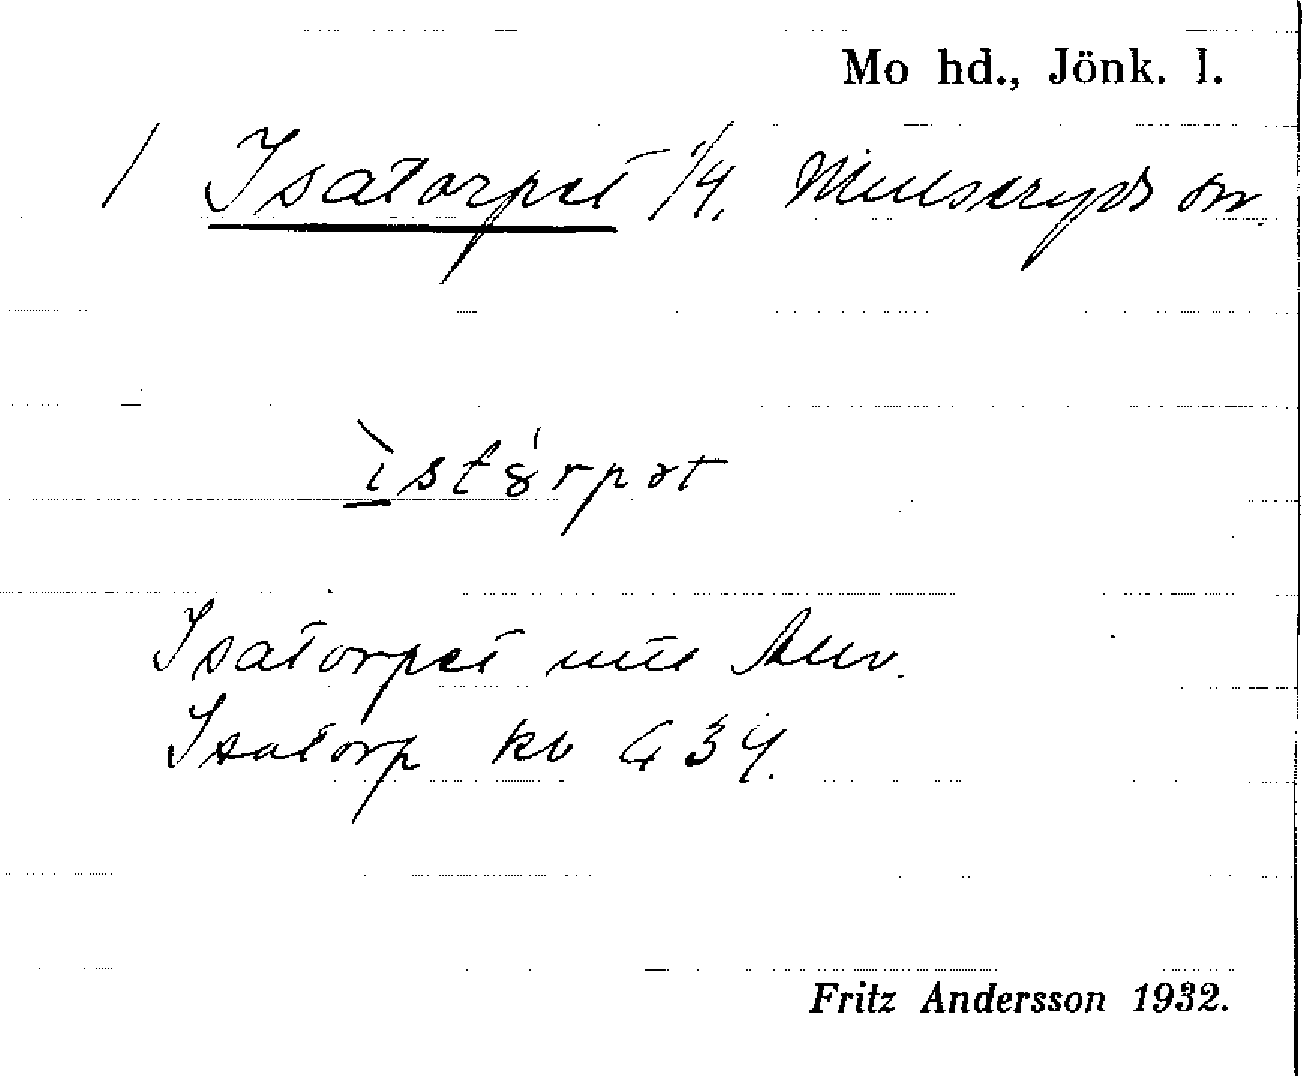 Mo hd., Jönk. l.
/ Isatorpet 1/4. Mulseryds sn.
ìstórpət
Isatorpet
Isatorp kb G 34.
Fritz Andersson 1932.